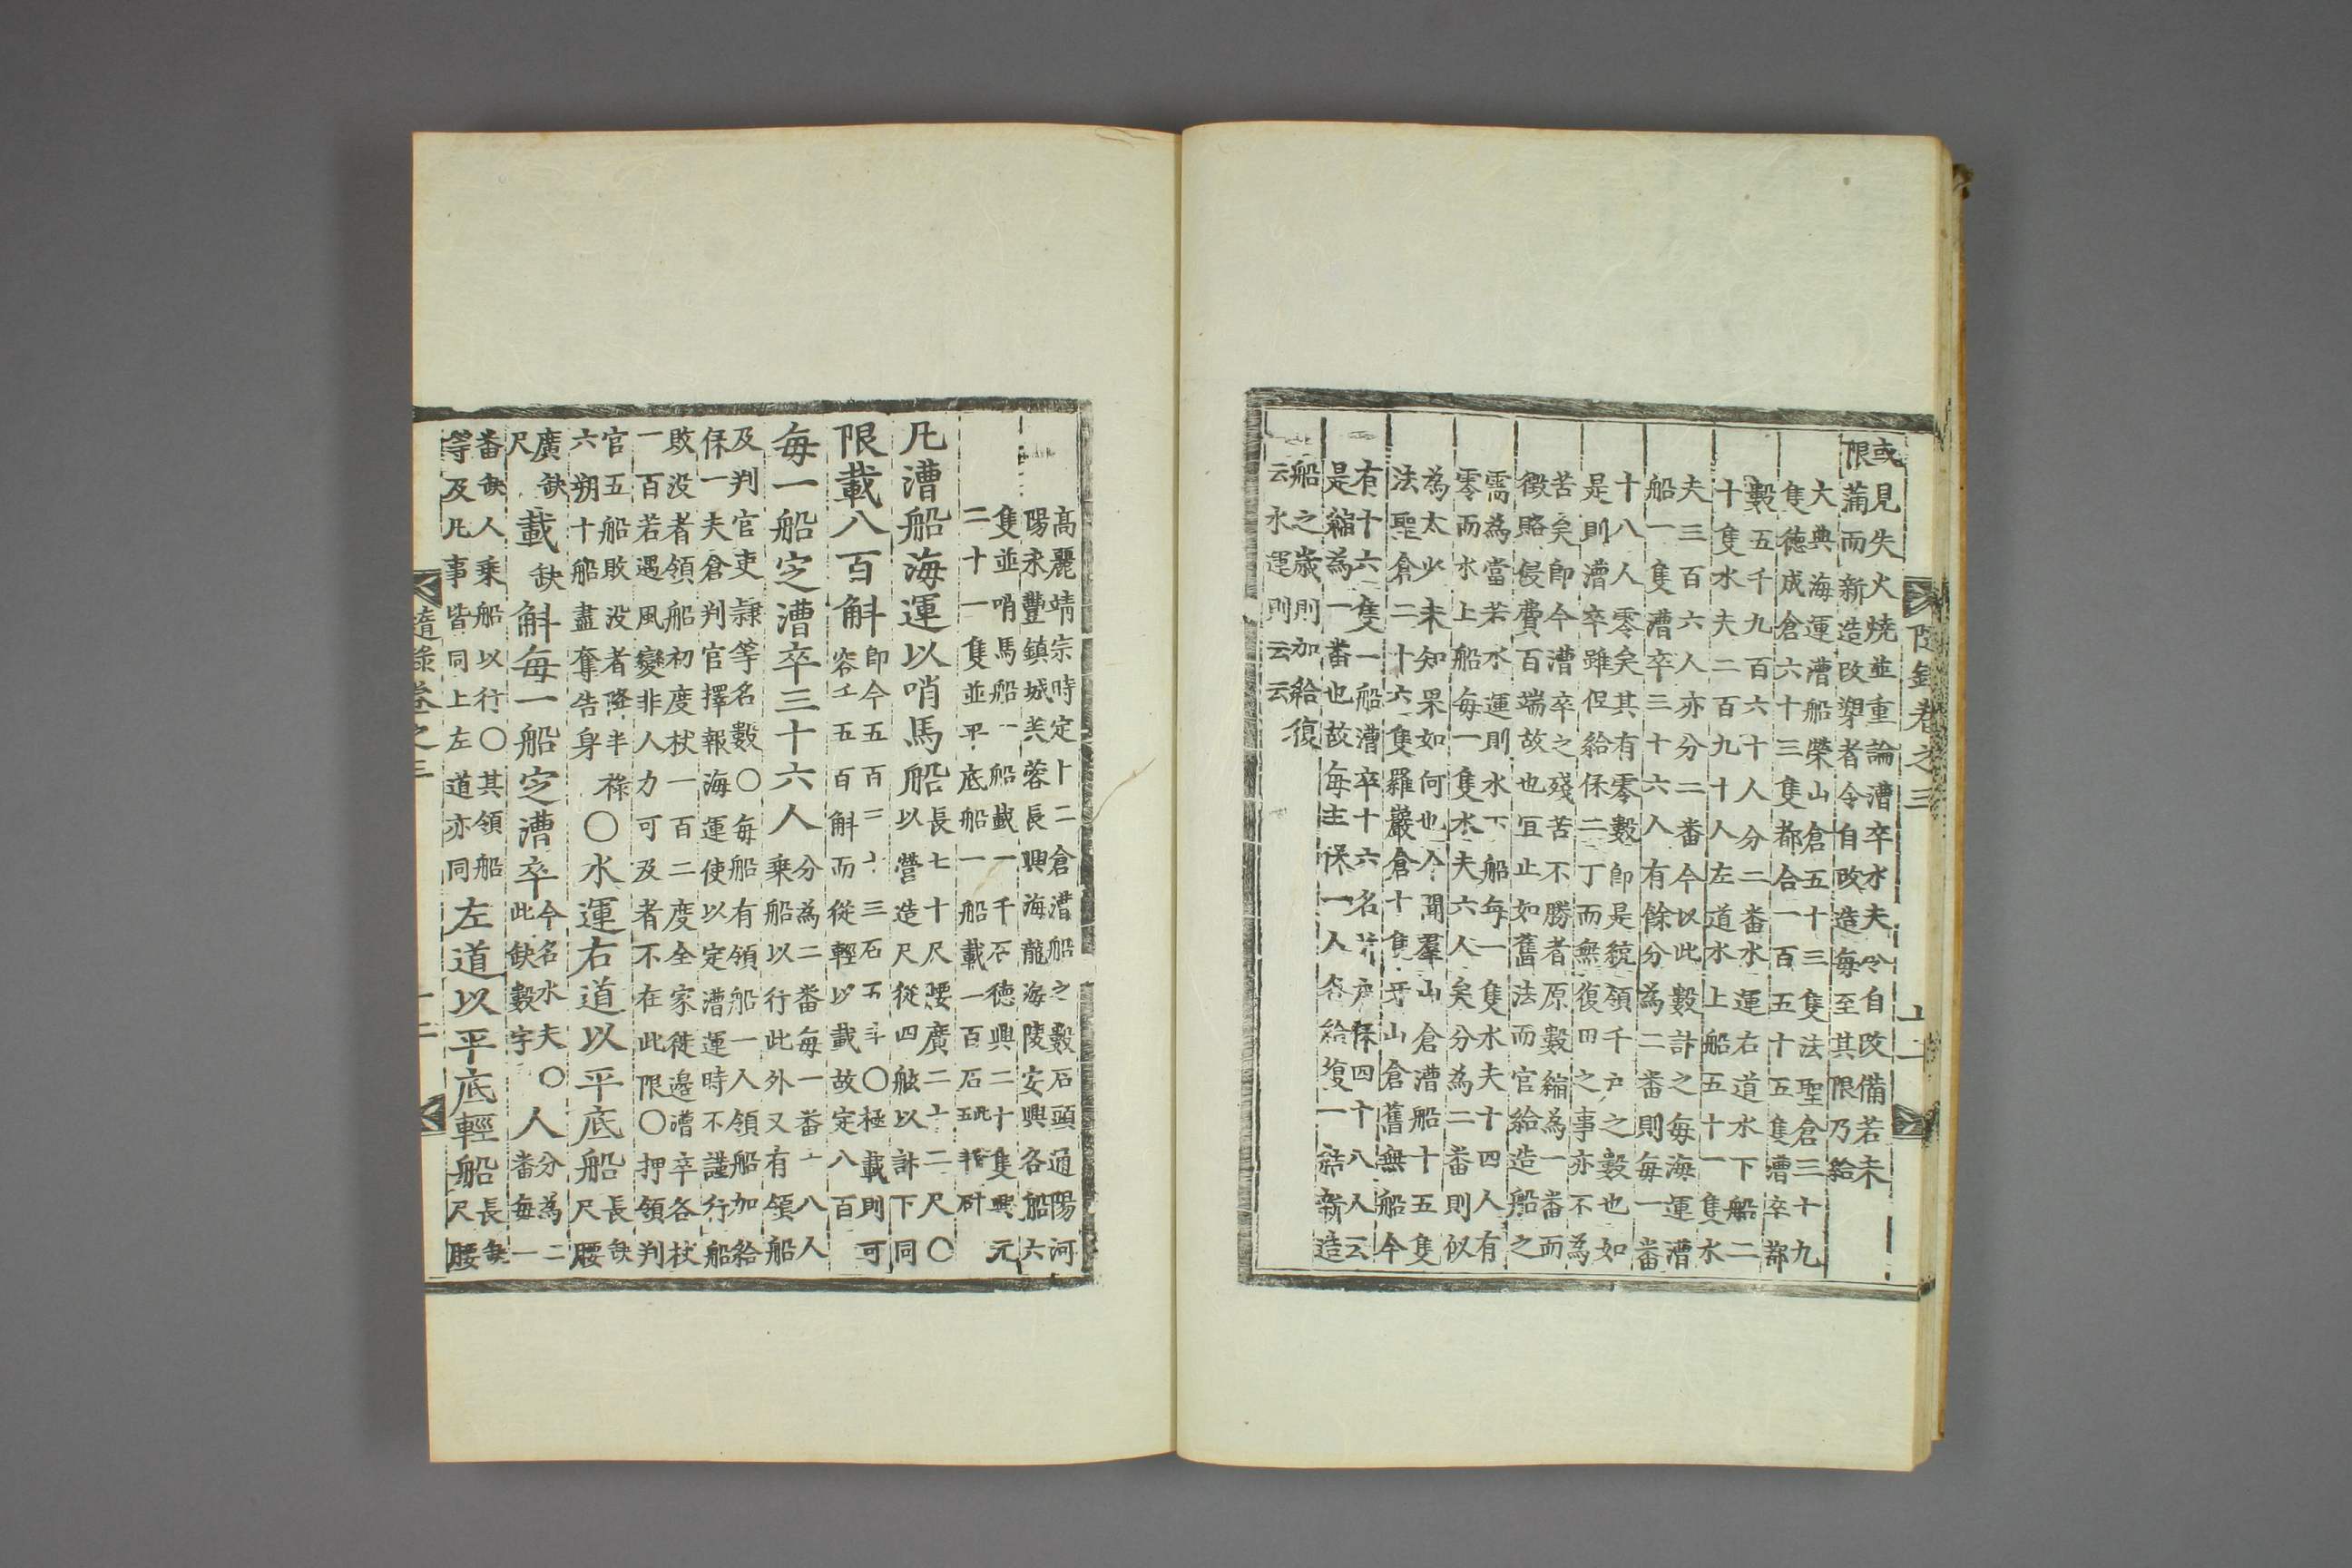 或見失火燒並重論漕卒水夫令自改備若未
限蒲而新造改塑者令自改造每至其限乃給
大典海運漕船榮山倉五十三隻法聖倉三十九
隻德成倉六十三隻都合一百五十五隻漕卒都
數五千九百六十人分二番水運右道水下船二
十隻水夫二百九十人左道水上船五十一隻水
夫三百六人亦分二番今以此數計之每海運漕
船一隻漕卒三十六人有餘分為二番則每一番
十八人零矣其有零數卽是統領千戶之數也如
是則漕卒雖侄給保二丁而無復田之事亦不為
苦矣卽今漕卒之殘苦不勝者原數縮為一番而
徵賂侵費百端故也宜止如舊法而官給造船之
需為當若水運則水下船每一隻水夫十四人有
零而水上船每一隻水夫六人矣分為二番則似
為太少未知果如何也今聞羣山倉漕船十五隻
法聖倉二十六隻羅巖倉十隻牙山倉舊無船今
有十六隻一船漕卒十六名并戶保四十八人云
是縮為一番也故每主保一人各給復一結新造
船之歲則加給復
云水運則云云
隨錄卷之三
十二
高麗靖宗時定十二倉漕船之數石頭通陽河
陽永豐鎮城芙蓉長興海龍海陵安興各船六
隻並哨馬船一船載一千石德興二十隻興元
二十一隻並平底船一船載一百石
凡漕船海運以哨馬船長七十尺腰廣二十二尺〇
以營造尺從四舷以計下同
限載八百斛卽今五百三十三石五斗〇極載則可
容五百斛而從輕以載故定八百
每一船定漕卒三十六人分為二番每一番十八人
乘船以行此外又有領船
及判官吏隸等名數〇每船有領船一人領船加給
保一夫倉判官擇報海運使以定漕運時不謹行船
敗没者領船初度杖一百二度全家徙邊漕卒各杖
一百若遇風變非人力可及者不在此限〇押領判
官五船敗没者降半祿〇水運右道以平底船長缺
六朔十船盡奪告身尺腰
廣缺載缺斛每一船定漕卒今名水夫〇人分為二
尺此缺數字番每一
番缺人乘船以行〇其領船左道以平底輕船長缺
等及凡事皆同上左道亦同尺腰
隨錄卷之三
十二